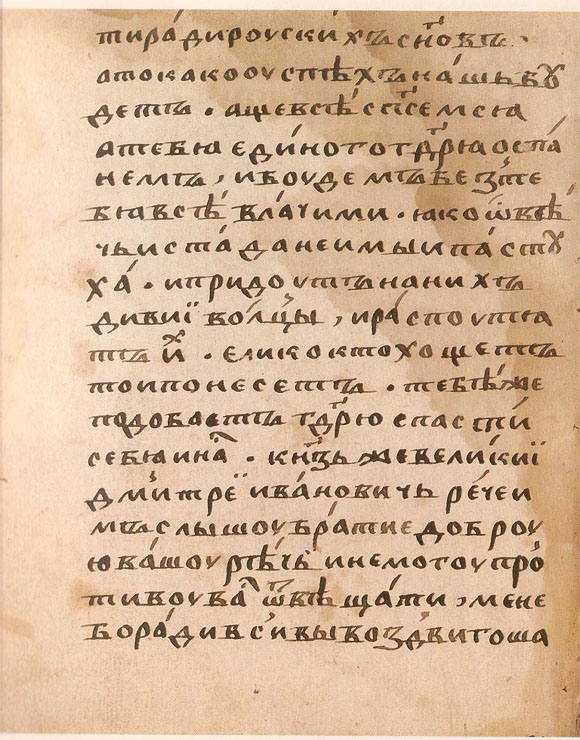 ти ра́ди роуски хъ сн҃овъ ·
а то како оуспѣхъ на́шь бꙋ
деть · аще всѣ сп҃семсѧ
а тебѧ еди́ного гдрⷭ҇ѧ оспа́
немъ , и боудемъ без̾ те
бѧ всѣ влачими · ꙗко ѿвѣ́
чьи ста́да неимыи пастꙋ
ха́ · и придоуть на ни хъ
дивиї во́лцы , и распоутѧ
ть иⷯ · елико кто хощеть
то и понесеть · тебѣ же
подобаеть гдрⷭ҇ю спасти́
себѧ и наⷭ · кнз҃ь же вели́киї
дми́треї ива́новичь ре́че и
мъ слышоу братие доброу
ю ва́шоу рѣчь и не могоу про́
тивоу ваⷭ ѿвѣща́ти , мене
бо ра́ди вси́ вы воздви́гоша